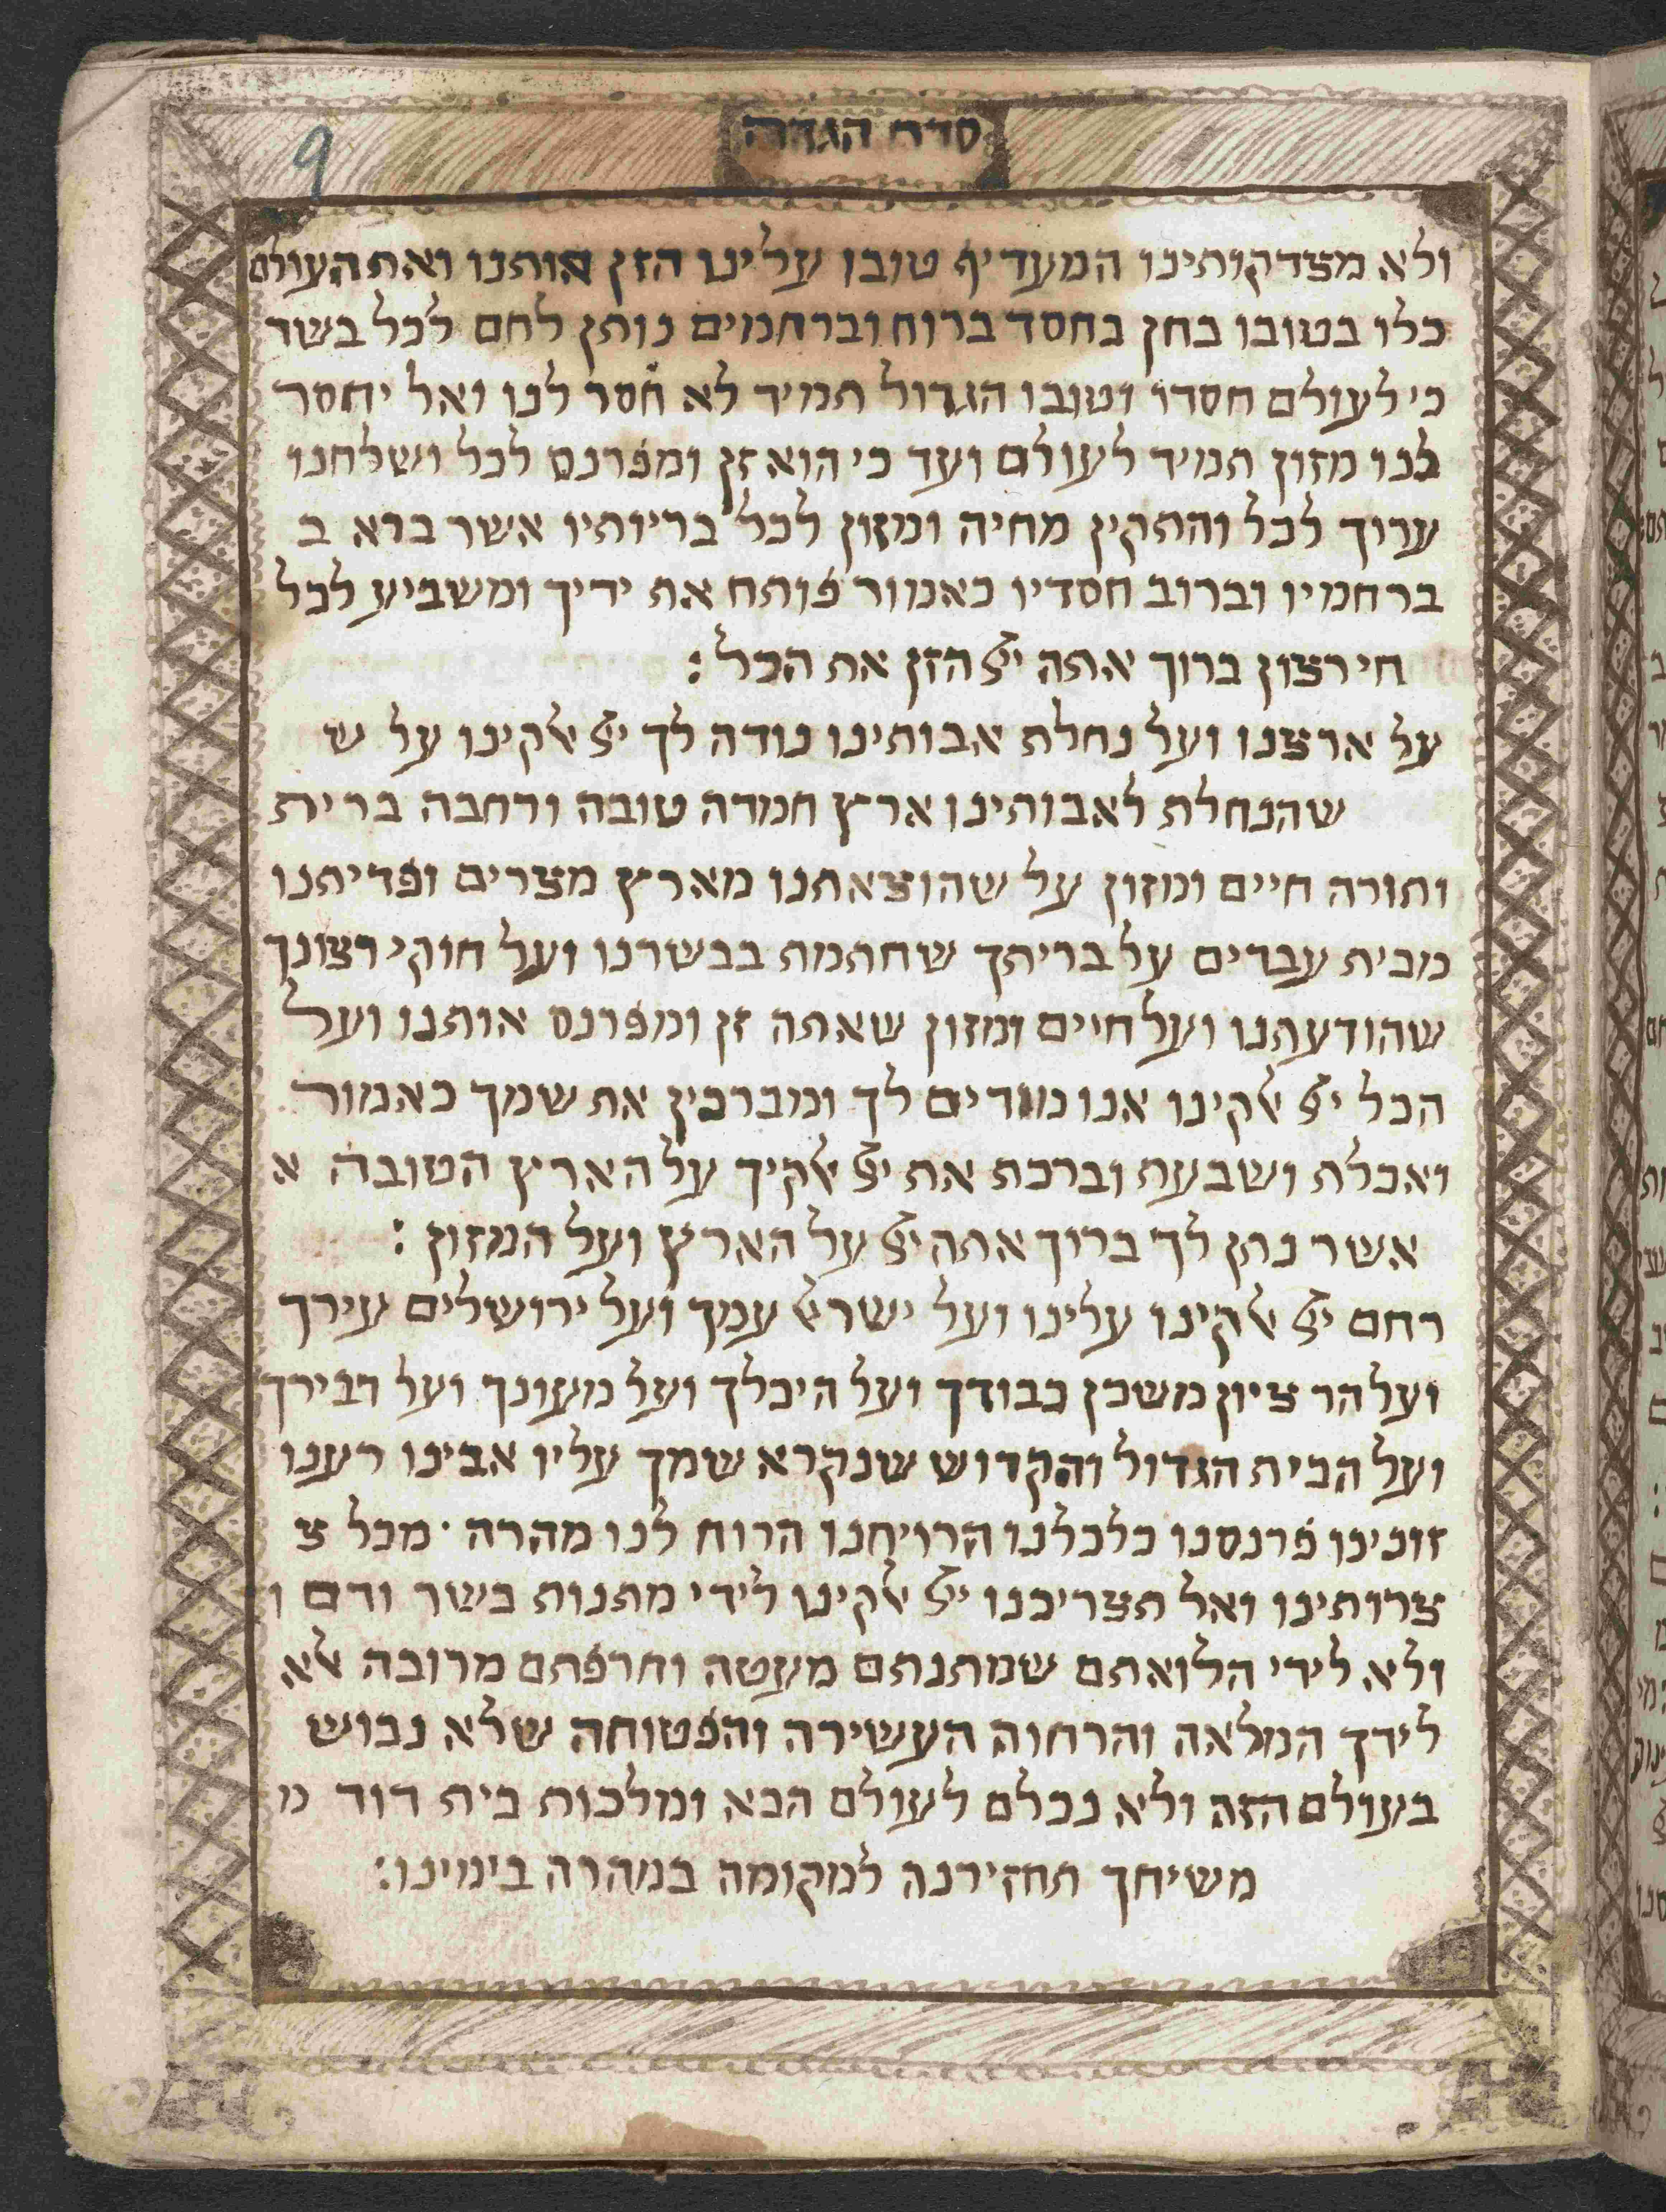 סדר הגדה
9
ולא מצדקותינו המעדיף טובו עלינו הזן אותנו ואת העולם
כלו בטובו בחן בחסד ברוח וברחמים נותן לחם לכל בשר
כי לעולם חסדו וטובו הגדול תמיד לא חסר לנו ואל יחסר
לנו מזון תמיד לעולם ועד כי הוא זן ומפרנס לכל ושלחנו
ערוך לכל והתקין מחיה ומזון לכל בריותיו אשר ברא ב
ברחמיו וברוב חסדיו כאמור פותח את ידיך ומשביע לכל
חי רצון ברוך אתה יי הזן את הכל :
על ארצנו ועל נחלת אבותינו נודה לך יי אלקינו על ש
שהנחלת לאבותינו ארץ חמדה טובה ורחבה ברית
ותורה חיים ומזון על שהוצאתנו מארץ מצרים ופדיתנו
מבית עבדים על בריתך שחתמת בבשרנו ועל חוקי רצונך
שהודעתנו ועל חיים ומזון שאתה זן ומפרנס אותנו ועל
הכל יי אלקינו אנו מודים לך ומברכין את שמך כאמור
ואכלת ושבעת וברכת את יי אלקיך על הארץ הטובה א
אשר נתן לך ברוך אתה יי על הארץ ועל המזון :
רחם יי אלקינו עלינו ועל ישראל עמך ועל ירושלים עירך
ועל הר ציון משכן כבודך ועל היכלך ועל מעונך ועל דבירך
ועל הבית הגדול והקדוש שנקרא שמך עליו אבינו רענו
זונינו פרנסנו כלכלנו הרויחנו הרוח לנו מהרה · מכל צ
צרותינו ואל תצריכנו יי אלקינו לידי מתנות בשר ודם ו
ולא לידי הלואתם שמתנתם מעטה וחרפתם מרובה אלא
לידך המלאה והרחוה העשירה והפטוחה שלא נבוש
בעולם הזה ולא נכלם לעולם הבא ומלכות בית דוד מ
משיחך תחזירנה למקומה במהרה בימינו: